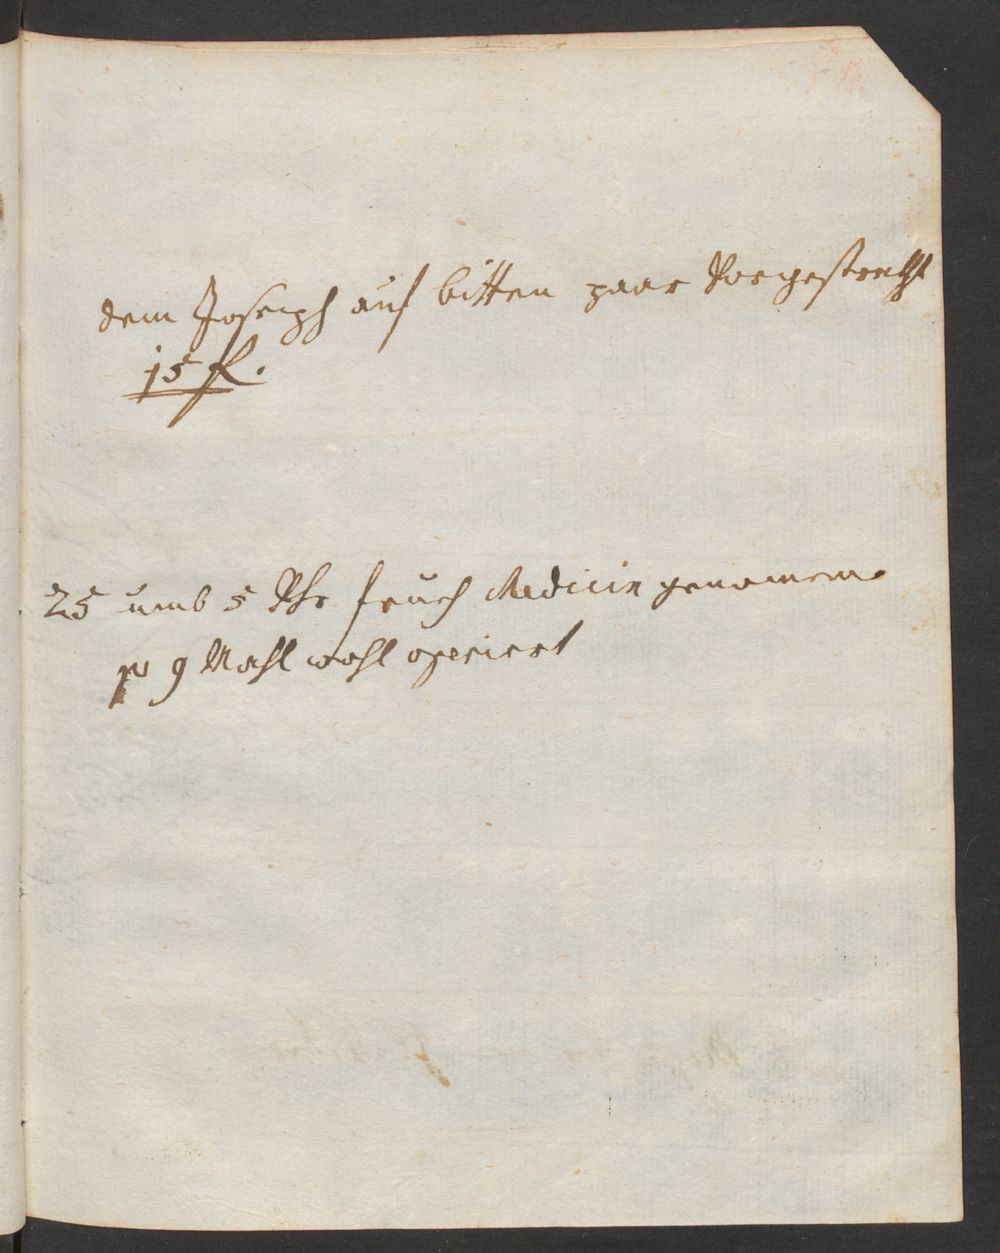 dem Joseph auf bitten paar Vorgestrekht
15 fl.
25 umb 5 Vhr frueh Medicin genomen
p 9 Mahl wohl operiert